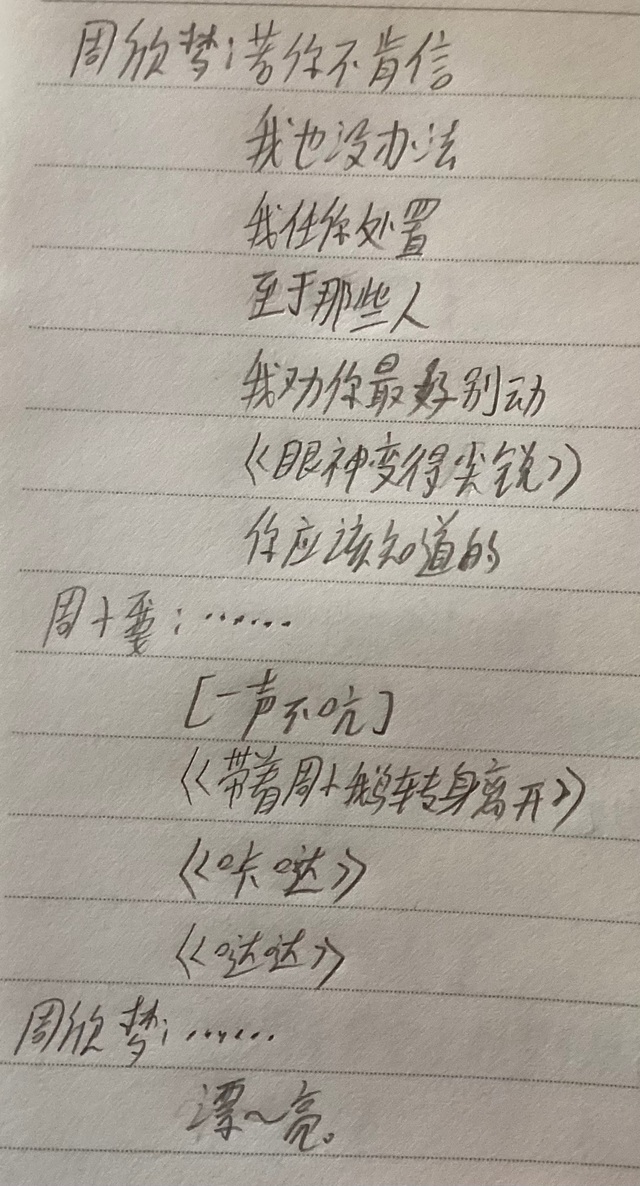 周欣梦:若你不肯信
我也没办法
我任你处置
至于那些人
我劝你最好别动
《眼神变得尖锐》
你应该知道的
周十要:……
[一声不吭]
《带着周十鹅转身离开》
《咔哒》
《哒哒》
周欣梦:……
漂~亮。